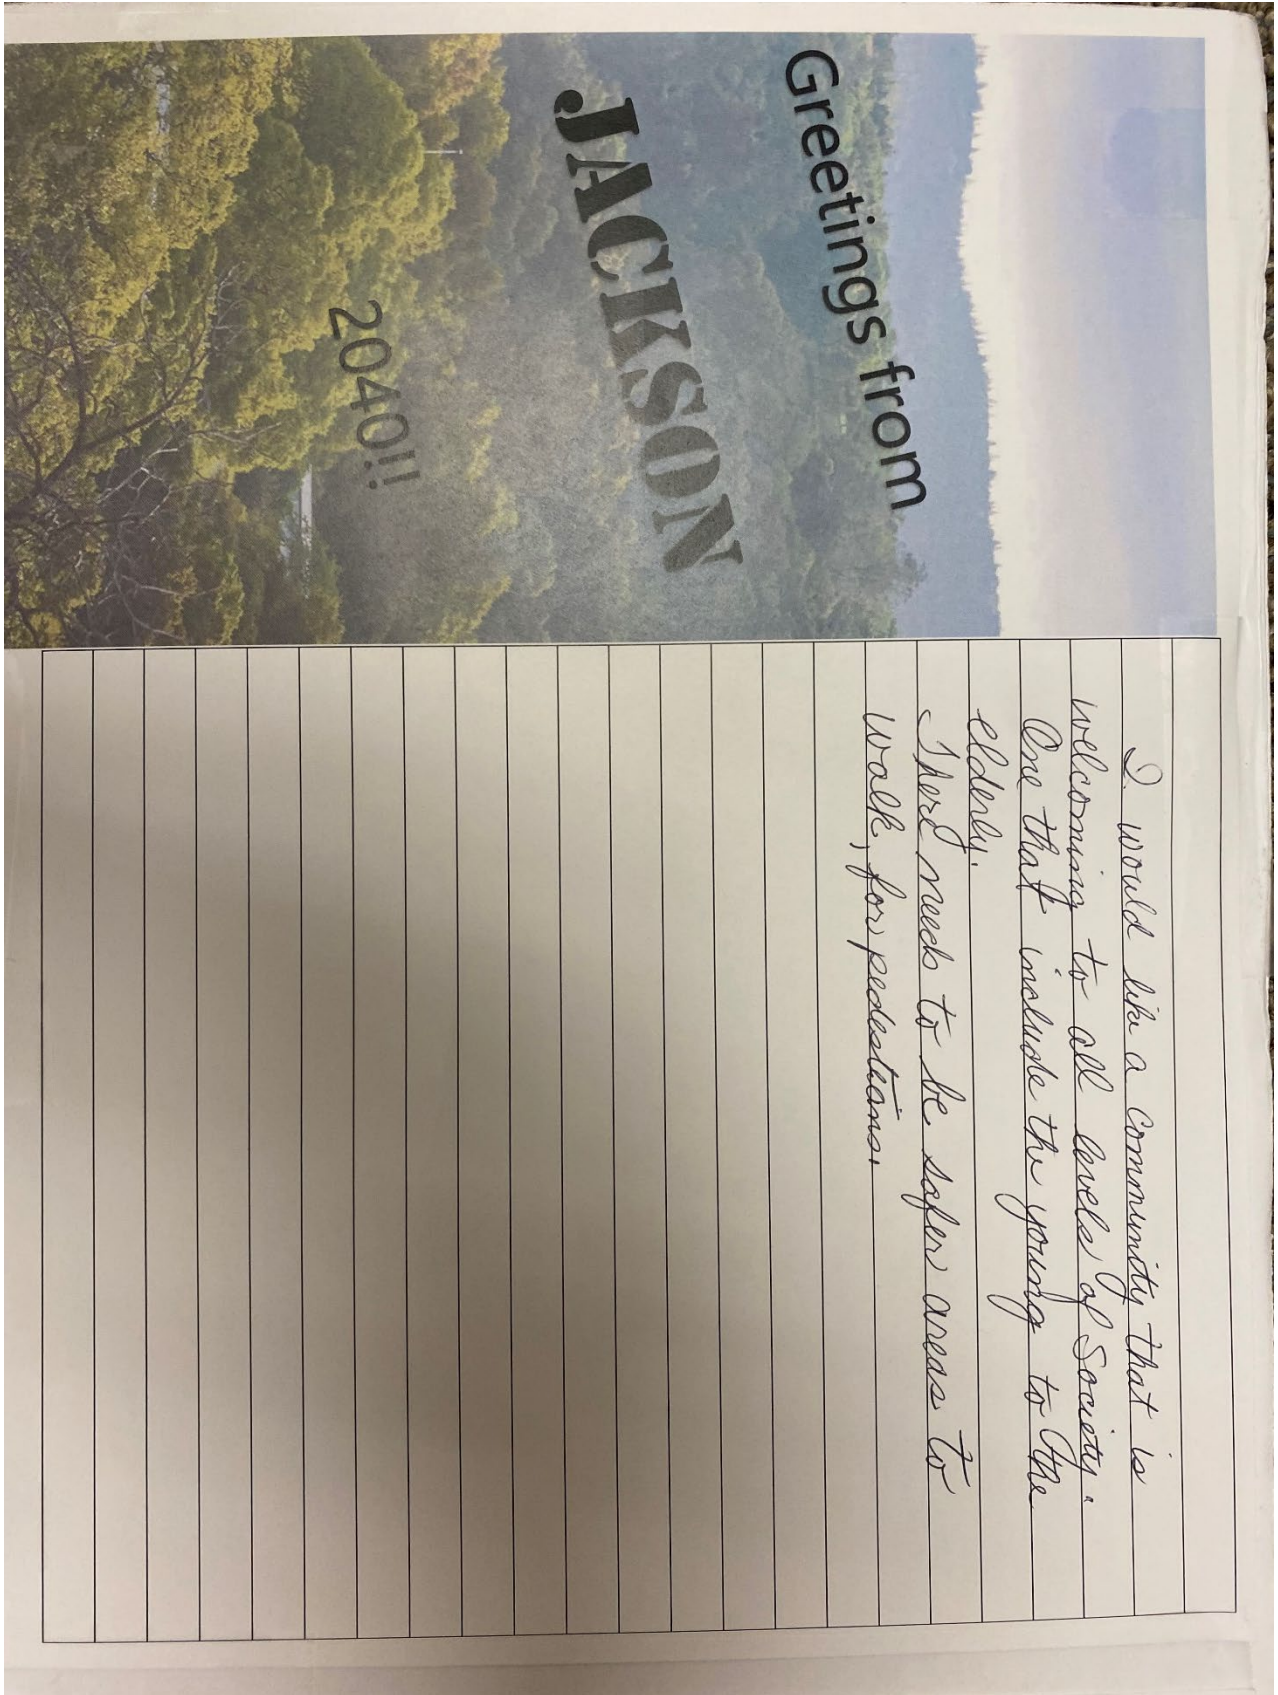 Greetings from
JACKSON
2040!!
I would like a community that is
welcoming to all levels of Society.
One that include the young to the
elderly.
There needs to be safer areas to
walk, for pedestrians.